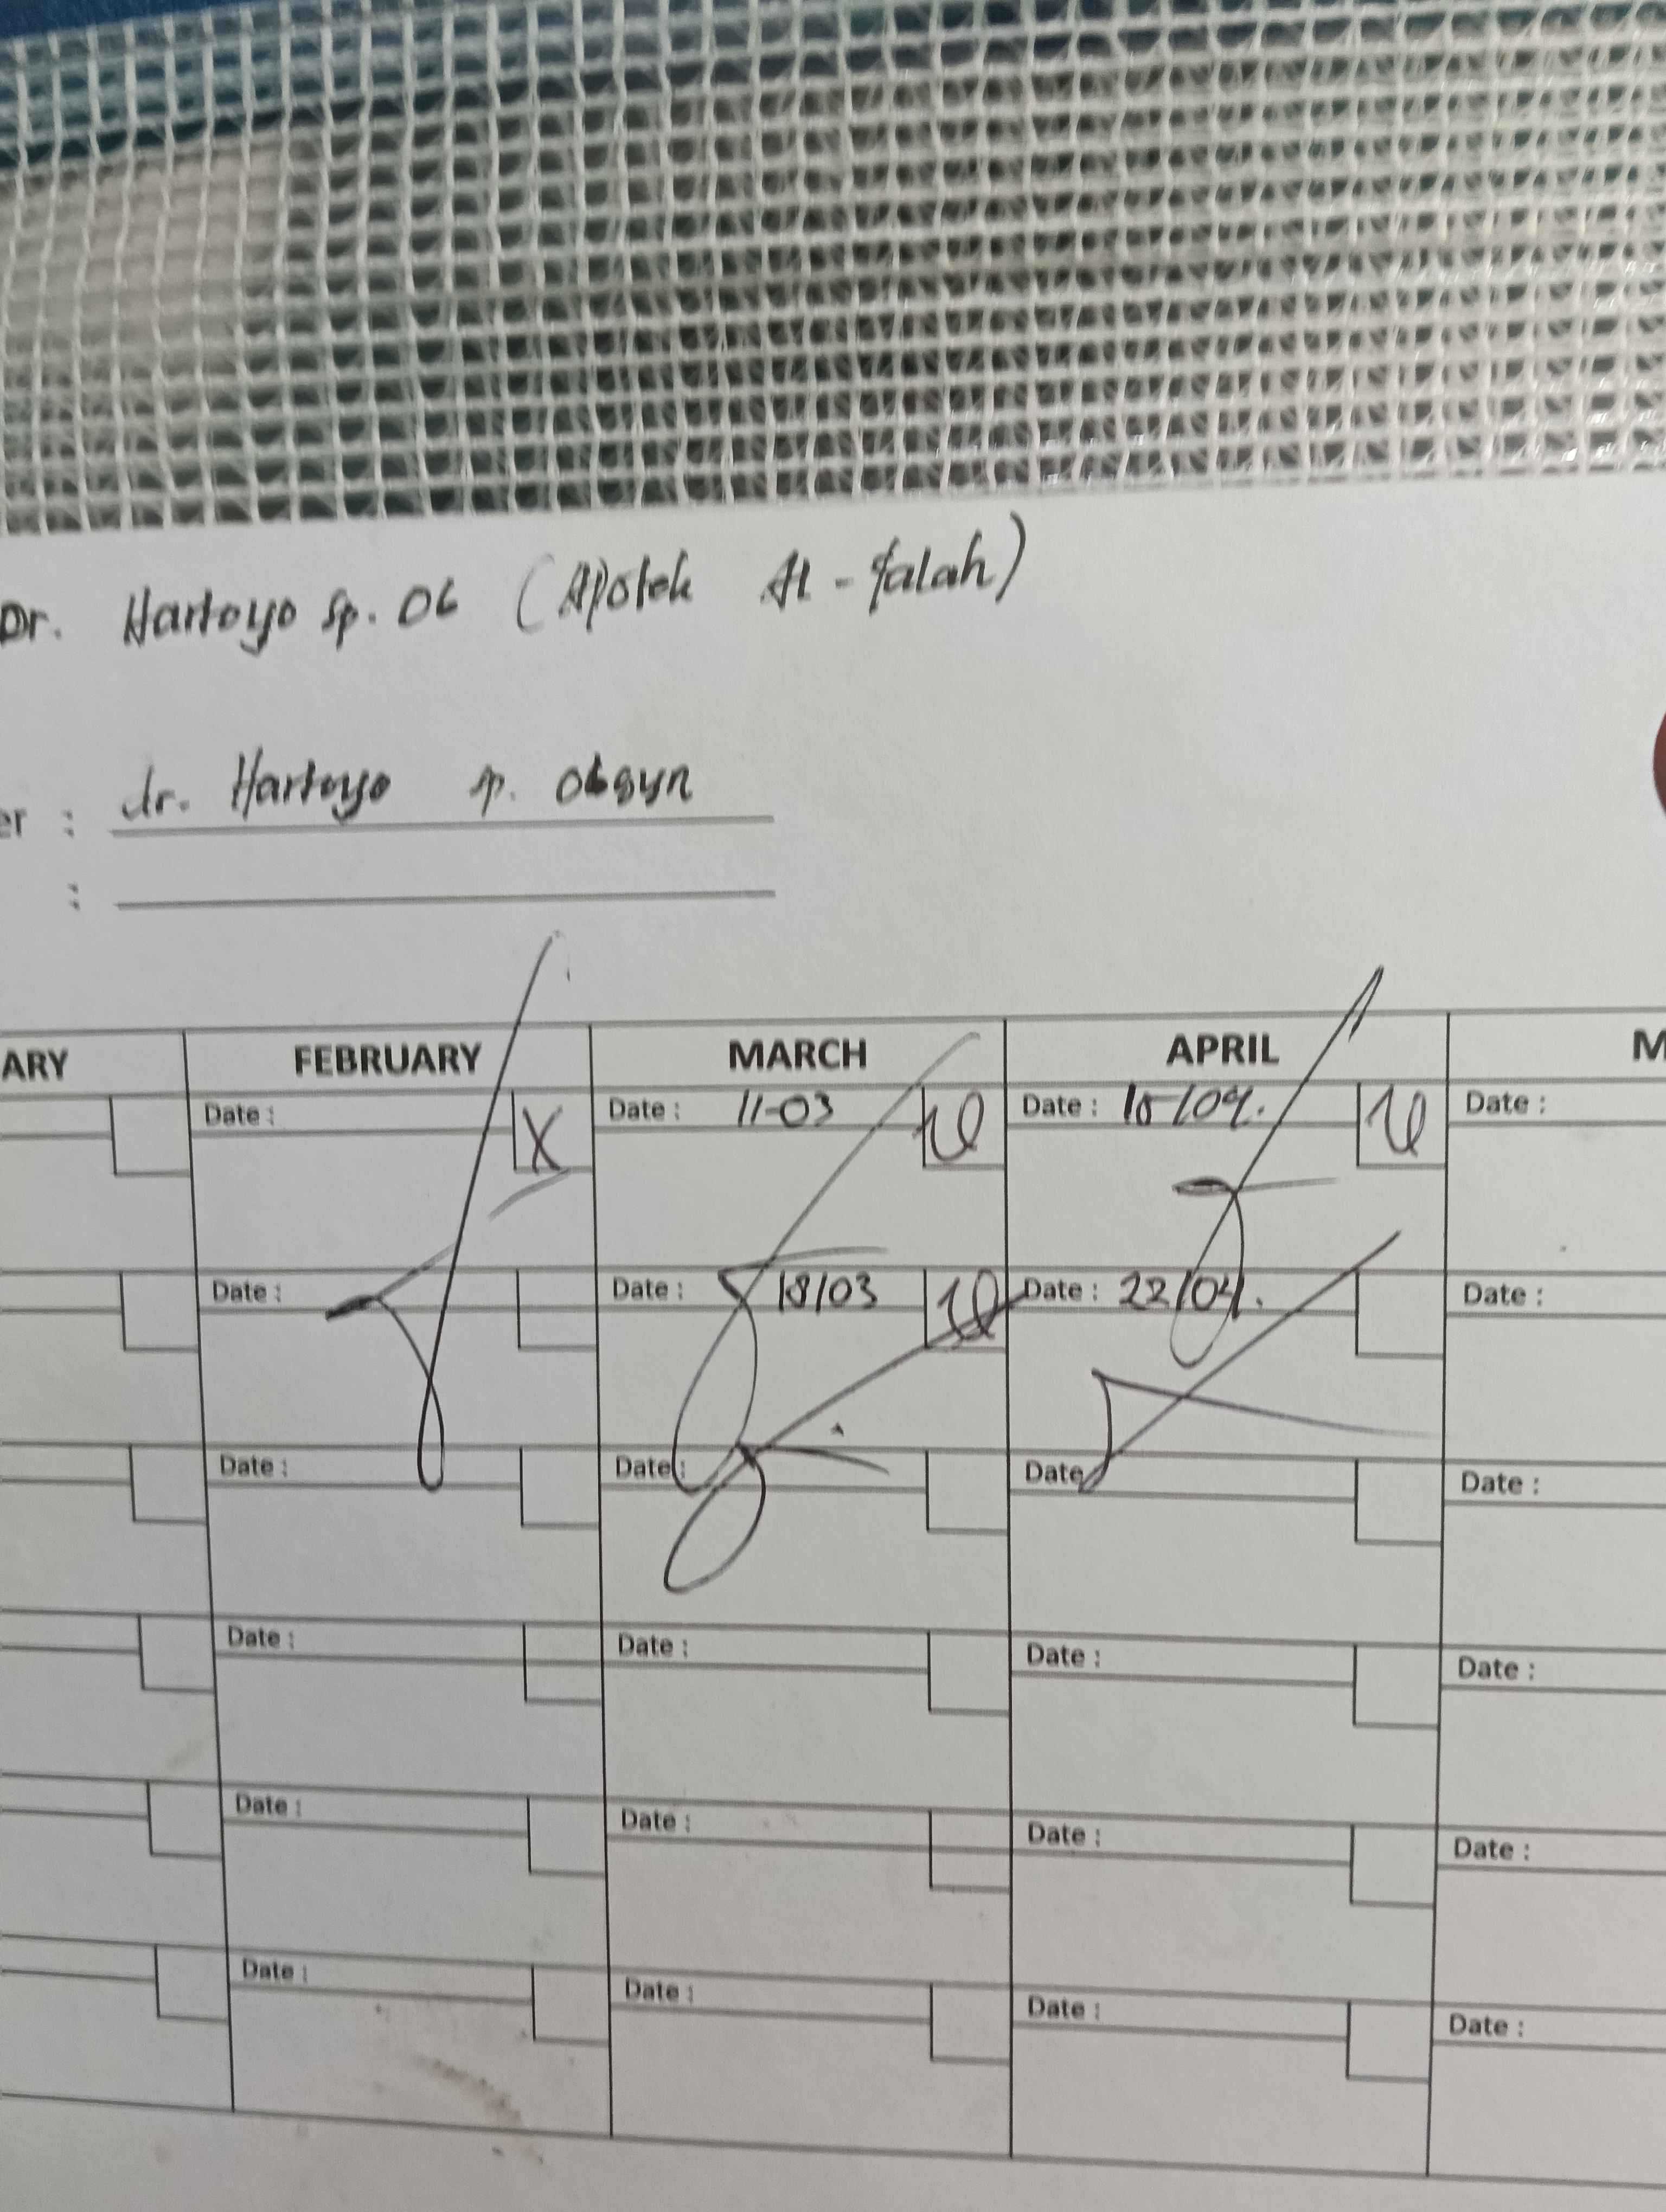 Dr. Hartoyo Sp. OG (Apotek Al-falah)
er : dr. Hartoyo sp. obgyn
:
ARY FEBRUARY MARCH APRIL M
Date : X Date : 11-03 Date : 15/04. Date :
Date : Date : 18/03 Date : 22/04. Date :
Date : Date : Date Date :
Date : Date : Date : Date :
Date : Date : Date : Date :
Date : Date : Date : Date :